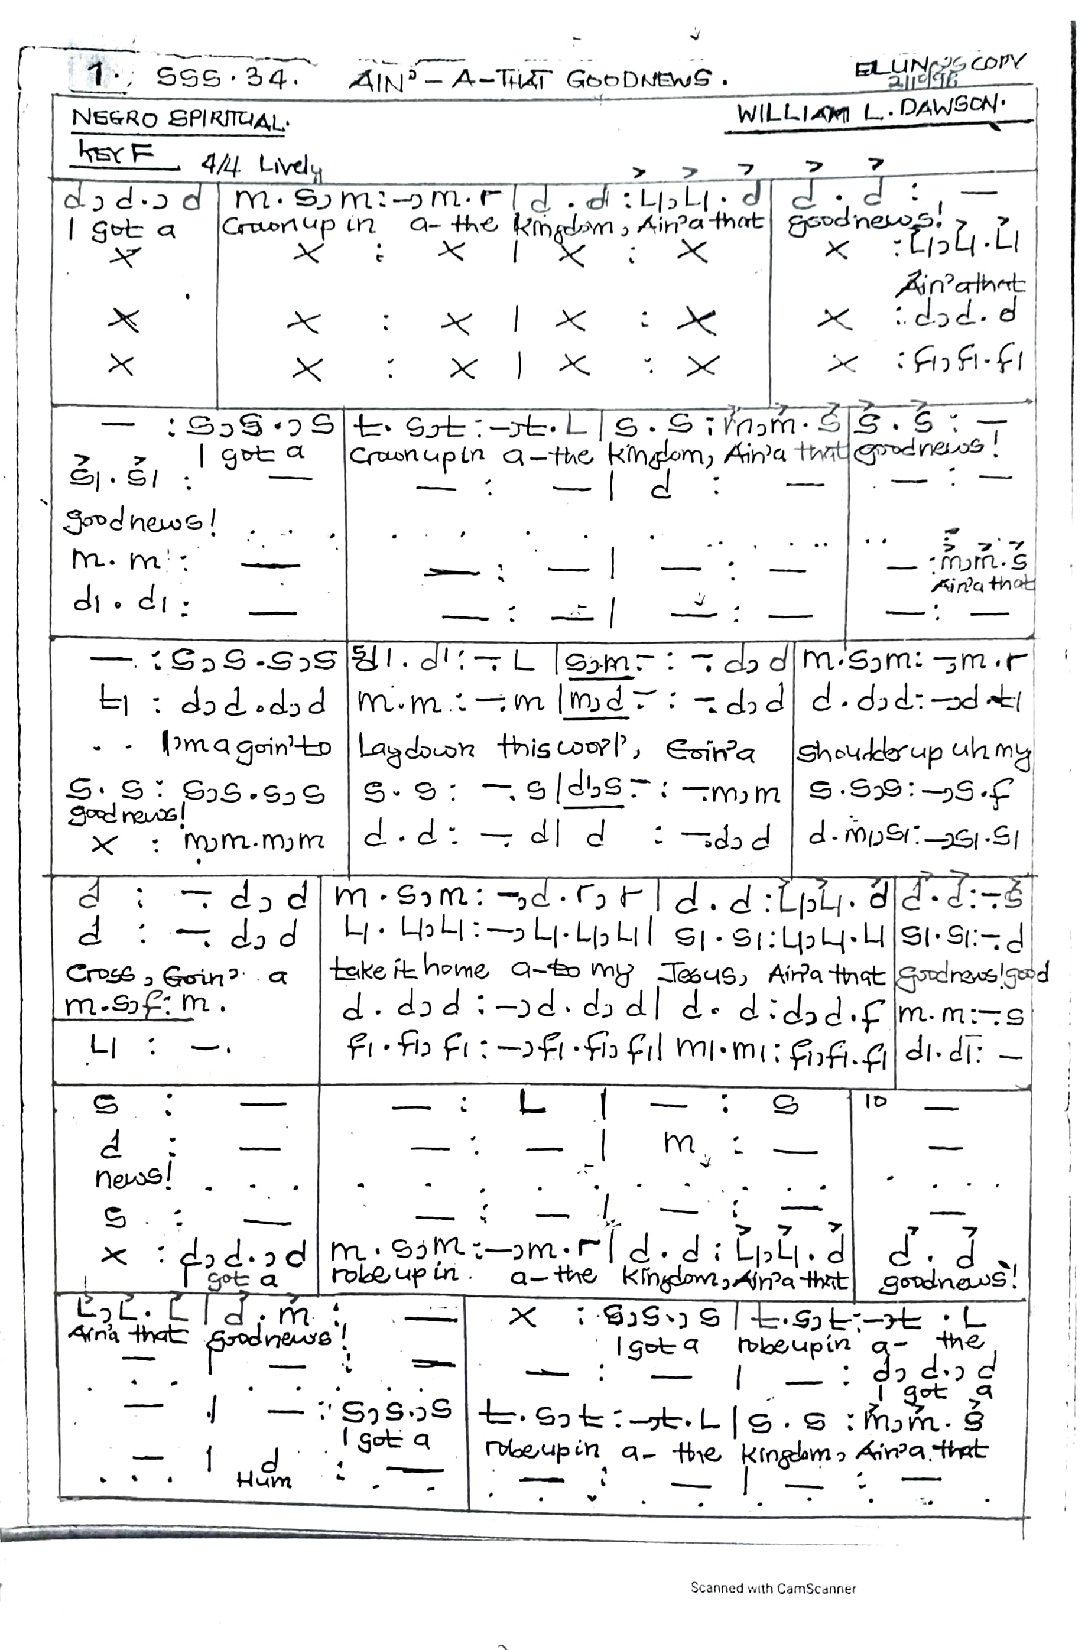 1. SSS.34. AIN'-A-THAT GOODNEWS.
ELUNO'S COPY
NEGRO SPIRITUAL.
WILLIAM L. DAWSON.
KEY F 4/4 Lively
d,d.,d | m.s,m:-,m.r | d.d:l₁,l₁.d | d.d:—
I got a Crown up in a-the kingdom, Ain'a that goodnews!
x x : x | x : x x :l₁,l₁.l₁
Ain'a that
x x : x | x : x x :d,d.d
x x : x | x : x x :f₁,f₁.f₁
— :s,s.,s | t.s,t:-,t.L | s.s:m,m.s | s.s:—
I got a Crown up in a-the kingdom, Ain'a that goodnews!
s₁.s₁: — — : — | d : — — : —
goodnews!
m.m: — — : — | — : — — :m,m.s
Ain'a that
d₁.d₁: — — : — | — : — — : —
—.:s,s.s,s | d'.d':-.L | s,m:-:-.d,d | m.s,m:-,m.r
t₁ : d,d.d,d | m.m:-.m | m,d-:-.d,d | d.d,d:-,d.t₁
I'm a goin' to Lay down this worl', Goin'a shoulder up uh my
s.s:s,s.s,s | s.s:-.s | d',s-:-.m,m | s.s,s:-,s.f
goodnews!
x : m,m.m,m | d.d:-.d | d :-.d,d | d.m₁,s₁:-,s₁.s₁
d : -.d,d | m.s,m:-,d.r,r | d.d:l₁,l₁.d | d.d:-.s
d : -.d,d | l₁.l₁,l₁:-,l₁.l₁,l₁ | s₁.s₁:l₁,l₁.l₁ | s₁.s₁:-.d
Cross, Goin' a take it home a-to my Jesus, Ain'a that goodnews! good
m.s,f:m. | d.d,d:-,d.d,d | d.d:d,d.f | m.m:-.s
l₁ : —. | f₁.f₁,f₁:-,f₁.f₁,f₁ | m₁.m₁:f₁,f₁.f₁ | d₁.d₁: —
s : — — : L | — : s 10 —
d : — — : — | m : — —
news!
s : — — : — | — : — —
x : d,d.,d | m.s,m:-,m.r | d.d:l₁,l₁.d | d.d
I got a robe up in a-the kingdom, Ain'a that goodnews!
L,L.L | d.m: — x :s,s.,s | t.s,t:-,t.L
Ain'a that goodnews! I got a robe up in a- the
— | — : — — : — | — : d,d.,d
I got a
— | — :s,s.,s t.s,t:-,t.L | s.s:m,m.s
I got a robe up in a- the kingdom, Ain'a that
— | d : — — : — | — : —
Hum
Scanned with CamScanner